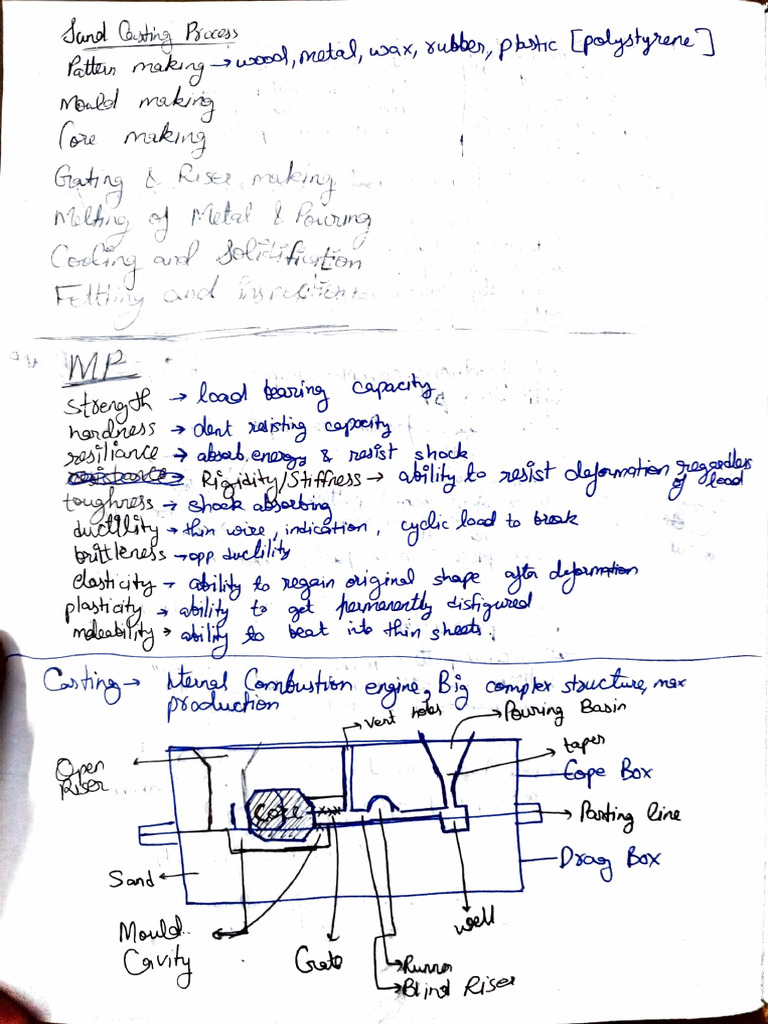 Sand Casting Process
Pattern making → wood, metal, wax, rubber, plastic [polystyrene]
Mould making
Core making
Grating & Riser making
Melting of Metal & Pouring
Cooling and Solidification
Fettling and
MP
Strength → load bearing capacity
hardness → dent resisting capacity
resiliance → absorb energy & resist shock
Rigidity/Stiffness → ability to resist deformation regardless of load
toughness → shock absorbing
ductility → thin wire, indication, cyclic load to break
brittleness → opp ductility
elasticity → ability to regain original shape after deformation
plasticity → ability to get permanently disfigured
maleability → ability to beat into thin sheets.
Casting → Internal Combustion engine, Big complex structure, max
production
vent holes
Pouring Basin
taper
Open
Riser
Cope Box
Core
Parting line
Drag Box
Sand
well
Mould
Cavity
Grate
Runner
Blind Riser